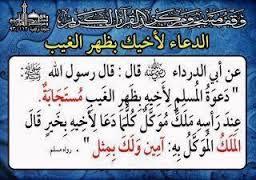 الدعاء لأخيك بظهر الغيب
عن أبي الدرداء رضي الله عنه قال : قال رسول الله ﷺ :
" دَعْوَةُ المسلمِ لأخيهِ بظَهرِ الغَيبِ مُستَجَابَةٌ.
عندَ رَأسِهِ مَلَكٌ مُوَكَّلٌ كُلَّمَا دَعَا لأخيهِ بخَيرٍ قَالَ
المَلَكُ المُوَكَّلُ بِهِ: آمِينَ وَلَكَ بِمِثلٍ " . رواه مسلم